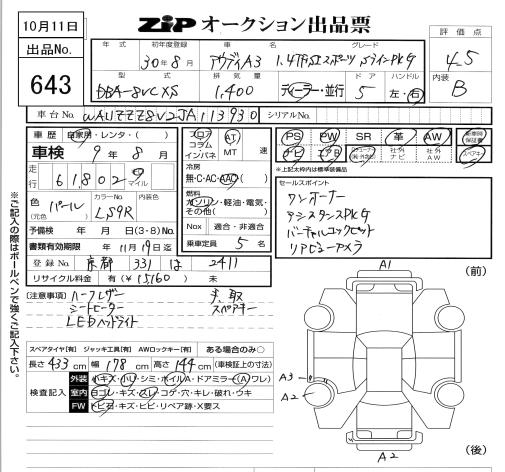 10月11日
出品No.
643
ZiP オークション出品票
評価点
4.5
内装
B
年式 初年度登録 車名 グレード
30年8月 アウディA3 1.4TFSI スポーツ SラインPKG
型式 排気量 ドア ハンドル
DBA-8VCXS 1,400 ディーラー・並行 5 左・右
車台No. WAUZZZ8V2JA113930 シリアルNo.
車歴 自家用・レンタ・( )
車検 9年8月
走行 61,802 マイル
色(元色) パール カラーNo. LS9R 内装色
予備検 年 月 日(3-8)No.
書類有効期限 11月19日迄
登録No. 京都 331 は 2411
リサイクル料金 有(¥15160) 未
フロア コラム インパネ AT MT 速
冷房
無・C・AC・AAC
燃料
ガソリン・軽油・電気・その他( )
Nox 適合・非適合
乗車定員 5名
PS PW SR 革 AW
ナビ 社外ナビ 社外AW
スペアキー
※上記太枠内は標準装備品
セールスポイント
ワンオーナー
アシスタンスPKG
バーチャルコックピット
リアビューカメラ
(注意事項) ハーフレザー 手、取
シートヒーター スペアキー
LEDヘッドライト
スペアタイヤ[有] ジャッキ工具[有] AWロックキー[有] ある場合のみ○
長さ433cm 幅178cm 高さ144cm (車検証上の寸法)
検査記入
外装 小キズ・小U・シミ・ホイルA・ドアミラー(A)ワレ)
室内 ヨゴレ・キズ・スレ・コゲ・穴・キレ・破れ・ウキ
FW トビ石・キズ・ヒビ・リペア跡・X要ス
※ご記入の際はボールペンで強くご記入下さい。
A1
(前)
A3
A2
A2
(後)